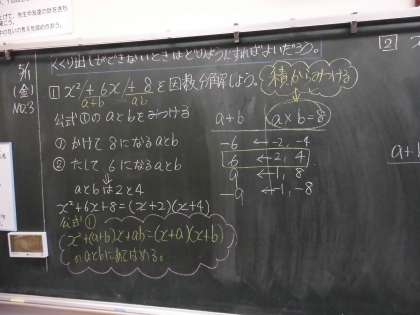 くくり出しができないときはどのようにすればよいだろう。
5/1
(金)
NO.3
1 x²+6x+8を因数分解しよう。
a+b ab
公式①のaとbをみつける
⑦かけて 8になるaとb
②たして 6になるaとb
⇓
aとbは2と4
x²+6x+8=(x+2)(x+4)
公式①
x²+(a+b)x+ab=(x+a)(x+b)
のaとbにあてはめる。
積からみつける
a+b a×b=8
-6 ← -2, -4
6 ← 2, 4
9 ← 1, 8
-9 ← -1, -8
2 x
a+b